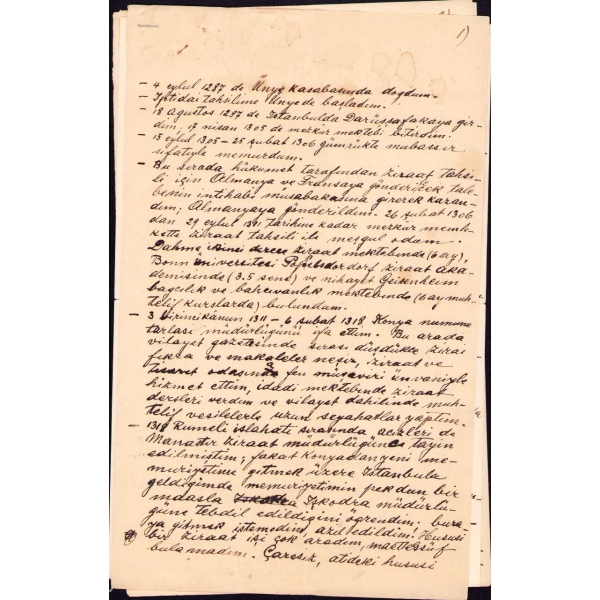 1)
- 4 eylul 1287 de Ünye kasabasında doğdum.
- İptidai tahsilime Ünyede başladım.
- 18 Ağustos 1297 de İstanbulda Darüşşafakaya gir-
dim. 17 nisan 1305 de mezkur mektebi bitirdim.
- 15 eylul 1305 - 25 şubat 1306 gümrükte mubassır
sıfatiyle memurdum.
- Bu sırada hükumet tarafından ziraat tahsi-
li için Almanya ve Fransaya gönderilecek tale-
benin intihabı müsabakasına girerek kazan-
dım; Almanyaya gönderildim. 26 şubat 1306
dan 29 eylul 1311 tarihine kadar mezkur memle-
kette ziraat tahsili ile meşgul oldum.
Dahme ikinci derece ziraat mektebinde (6 ay),
Bonn üniversitesi Poppelsdorf ziraat aka-
demisinde (3.5 sene) ve nihayet Geisenheim
bağcılık ve bahçıvanlık mektebinde (6 ay muh-
telif kurslarda) bulundum.
- 3 birinikânun 1311 - 6 şubat 1318 Konya numune
tarlası müdürlüğünü ifa ettim. Bu arada
vilayet gazetesinde sırası düşdükçe zirai
fıkra ve makaleler neşir, ziraat ve
ticaret odasında fen müşaviri ünvaniyle
hizmet ettim, idadi mektebinde ziraat
dersleri verdim ve vilayet dahilinde muh-
telif vesilelerle uzun seyahatlar yaptım.
- 1318 Rumeli islahatı sırasında acizleri de
Manastır ziraat müdürlüğüne tayin
edilmiştim; fakat Konyadan yeni me-
muriyetime gitmek üzere İstanbula
geldiğimde memuriyetimin pekdun bir
maaşla İşkodra müdürlü-
güne tebdil edildiğini öğrendim; bura-
ya gitmek istemedim, azil edildim! Hususi
bir ziraat işi çok aradım, maetteessüf
bulamadım. Çaresiz, atideki hususi